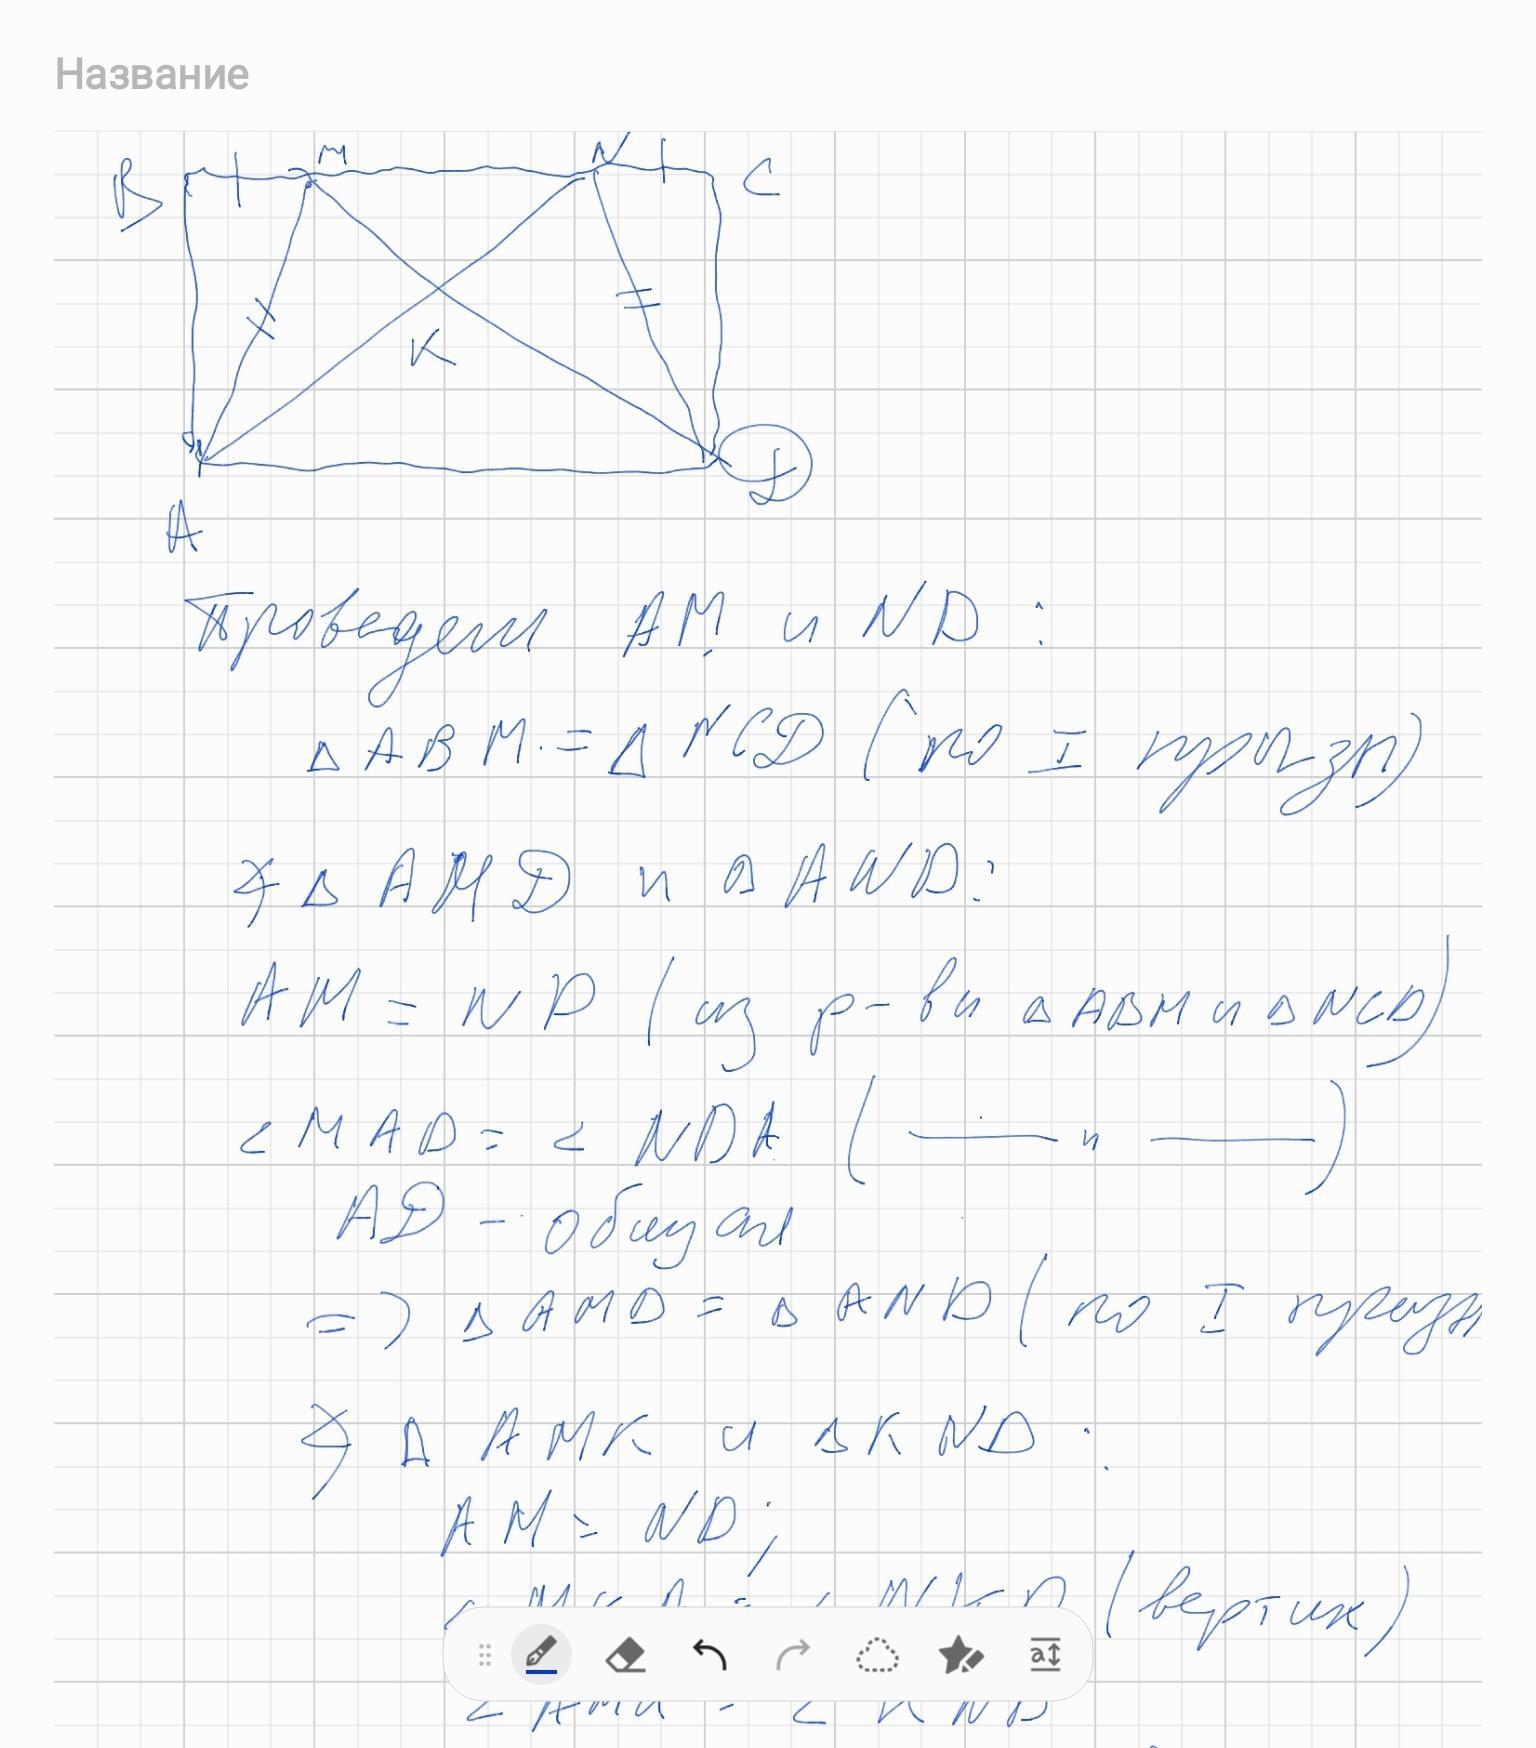 Название
B M N C
K
A D
Проведем AM и ND :
Δ ABM = Δ NCD (по I призн)
Δ AMD и Δ AND:
AM = ND (из р-ва Δ ABM и Δ NCD)
< MAD = < NDA ( —— и —— )
AD - общая
=> Δ AMD = Δ AND (по I призн
Δ AMK и Δ KND :
AM = ND;
< MKA = < NKD (вертик)
a
< AMK = < KND